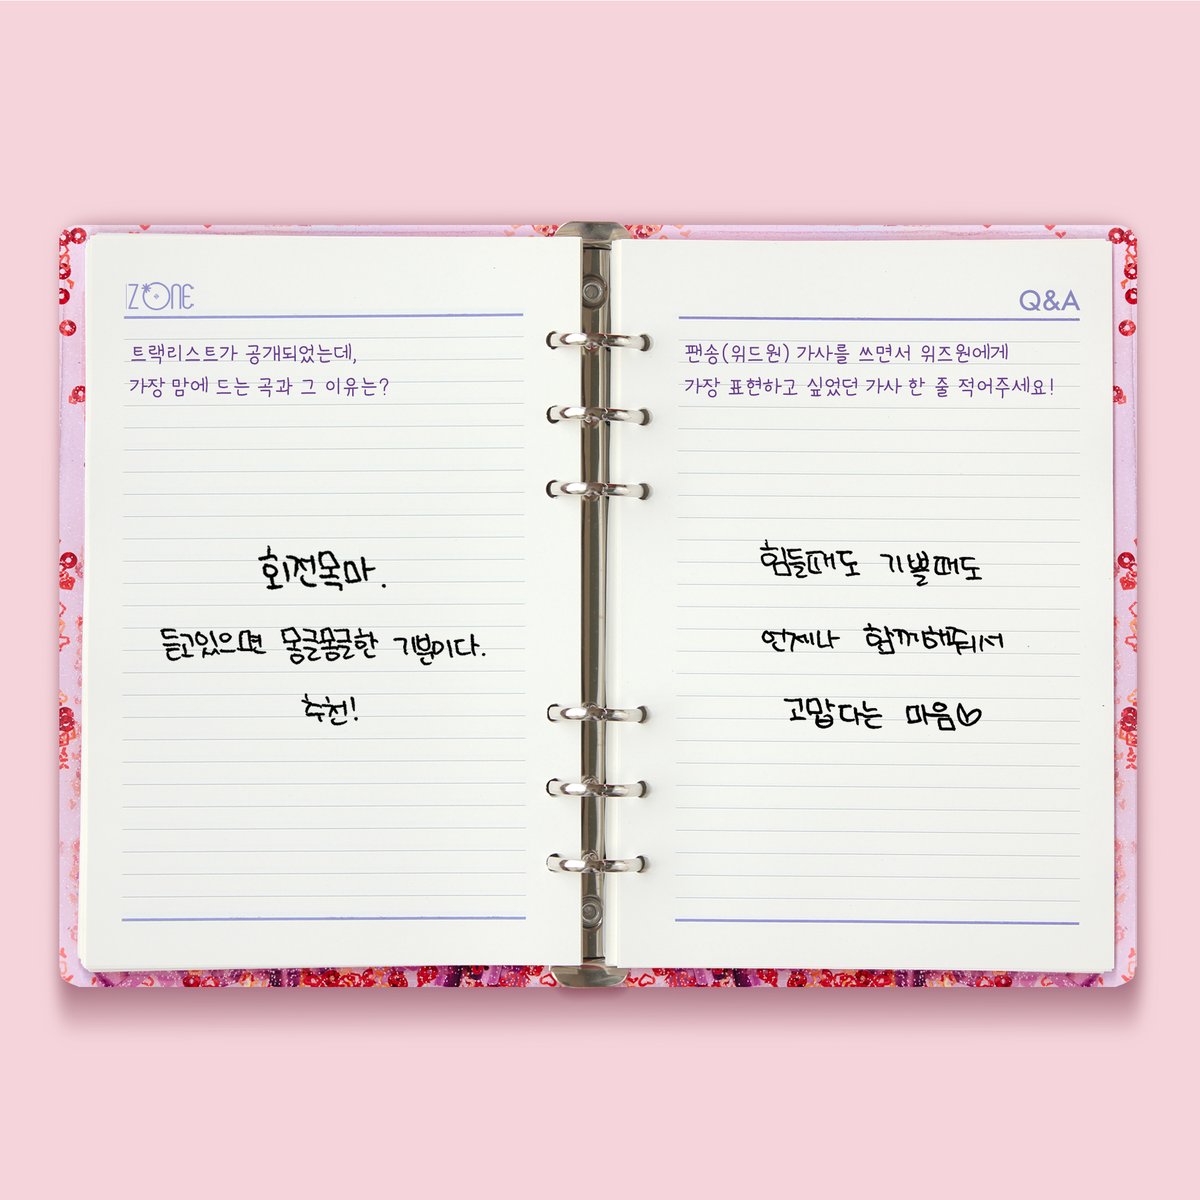 IZ*ONE
트랙리스트가 공개되었는데,
가장 맘에 드는 곡과 그 이유는?
회전목마.
듣고있으면 뭉글뭉글한 기분이다.
추천!
Q&A
팬송(위드원) 가사를 쓰면서 위즈원에게
가장 표현하고 싶었던 가사 한 줄 적어주세요!
힘들때도 기쁠때도
언제나 함께해줘서
고맙다는 마음♡